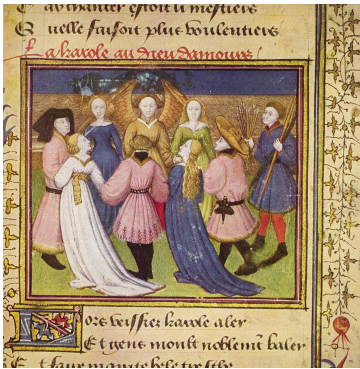 chanter estoit li mestiers
Quelle faisoit plus voulentiers
La karole au dieu damours
Lors veissiez karole aler
Et gens moult noblem̄t baler
Et faire mainte bele tresche